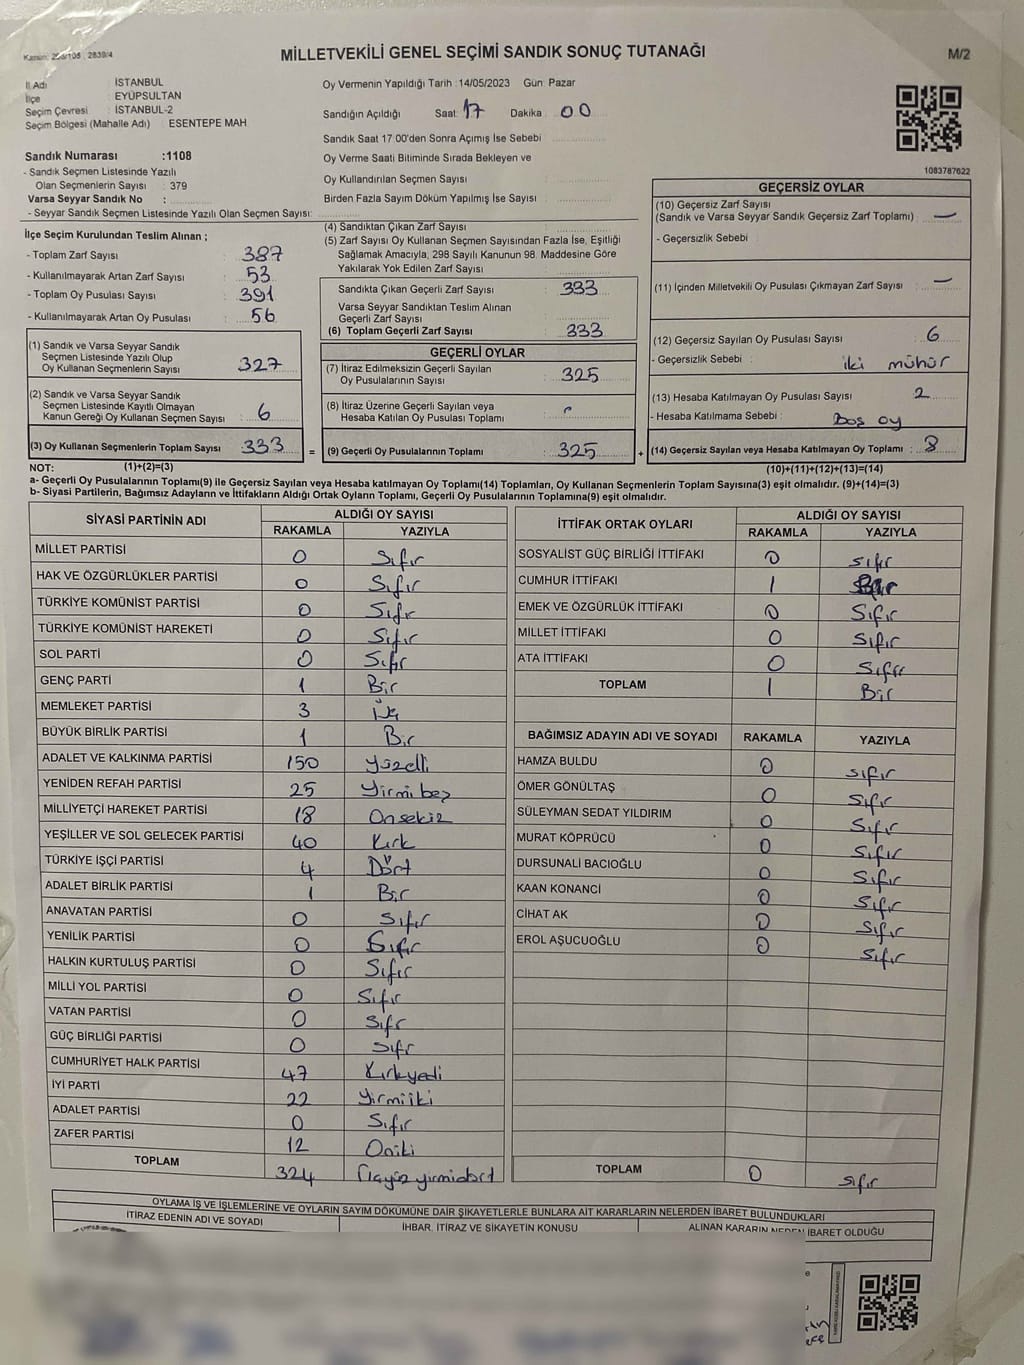 Kanun: 298/105 , 2839/4
MİLLETVEKİLİ GENEL SEÇİMİ SANDIK SONUÇ TUTANAĞI
M/2
İl Adı : İSTANBUL
İlçe : EYÜPSULTAN
Seçim Çevresi : İSTANBUL-2
Seçim Bölgesi (Mahalle Adı) : ESENTEPE MAH
Oy Vermenin Yapıldığı Tarih : 14/05/2023 Gün: Pazar
Sandığın Açıldığı Saat: 17 Dakika : 00
Sandık Saat 17:00'den Sonra Açımış İse Sebebi
Oy Verme Saati Bitiminde Sırada Bekleyen ve
Oy Kullandırılan Seçmen Sayısı
Birden Fazla Sayım Döküm Yapılmış İse Sayısı :
1083787622
Sandık Numarası :1108
- Sandık Seçmen Listesinde Yazılı
Olan Seçmenlerin Sayısı : 379
Varsa Seyyar Sandık No :
- Seyyar Sandık Seçmen Listesinde Yazılı Olan Seçmen Sayısı:
İlçe Seçim Kurulundan Teslim Alınan ;
- Toplam Zarf Sayısı : 387
- Kullanılmayarak Artan Zarf Sayısı : 53
- Toplam Oy Pusulası Sayısı : 391
- Kullanılmayarak Artan Oy Pusulası : 56
(1) Sandık ve Varsa Seyyar Sandık
Seçmen Listesinde Yazılı Olup
Oy Kullanan Seçmenlerin Sayısı : 327
(2) Sandık ve Varsa Seyyar Sandık
Seçmen Listesinde Kayıtlı Olmayan
Kanun Gereği Oy Kullanan Seçmen Sayısı : 6
(3) Oy Kullanan Seçmenlerin Toplam Sayısı : 333
(4) Sandıktan Çıkan Zarf Sayısı :
(5) Zarf Sayısı Oy Kullanan Seçmen Sayısından Fazla İse, Eşitliği
Sağlamak Amacıyla, 298 Sayılı Kanunun 98. Maddesine Göre
Yakılarak Yok Edilen Zarf Sayısı :
Sandıkta Çıkan Geçerli Zarf Sayısı : 333
Varsa Seyyar Sandıktan Teslim Alınan
Geçerli Zarf Sayısı :
(6) Toplam Geçerli Zarf Sayısı : 333
GEÇERLİ OYLAR
(7) İtiraz Edilmeksizin Geçerli Sayılan
Oy Pusulalarının Sayısı : 325
(8) İtiraz Üzerine Geçerli Sayılan veya
Hesaba Katılan Oy Pusulası Toplamı :
= (9) Geçerli Oy Pusulalarının Toplamı : 325 +
GEÇERSİZ OYLAR
(10) Geçersiz Zarf Sayısı
(Sandık ve Varsa Seyyar Sandık Geçersiz Zarf Toplamı) : —
- Geçersizlik Sebebi :
(11) İçinden Milletvekili Oy Pusulası Çıkmayan Zarf Sayısı : —
(12) Geçersiz Sayılan Oy Pusulası Sayısı : 6
- Geçersizlik Sebebi : iki mühür
(13) Hesaba Katılmayan Oy Pusulası Sayısı : 2
- Hesaba Katılmama Sebebi : Boş oy
(14) Geçersiz Sayılan veya Hesaba Katılmayan Oy Toplamı : 8
NOT: (1)+(2)=(3)
(10)+(11)+(12)+(13)=(14)
a- Geçerli Oy Pusulalarının Toplamı(9) ile Geçersiz Sayılan veya Hesaba katılmayan Oy Toplamı(14) Toplamları, Oy Kullanan Seçmenlerin Toplam Sayısına(3) eşit olmalıdır. (9)+(14)=(3)
b- Siyasi Partilerin, Bağımsız Adayların ve İttifakların Aldığı Ortak Oyların Toplamı, Geçerli Oy Pusulalarının Toplamına(9) eşit olmalıdır.
SİYASİ PARTİNİN ADI ALDIĞI OY SAYISI
RAKAMLA YAZIYLA
MİLLET PARTİSİ 0 Sıfır
HAK VE ÖZGÜRLÜKLER PARTİSİ 0 Sıfır
TÜRKİYE KOMÜNİST PARTİSİ 0 Sıfır
TÜRKİYE KOMÜNİST HAREKETİ 0 Sıfır
SOL PARTİ 0 Sıfır
GENÇ PARTİ 1 Bir
MEMLEKET PARTİSİ 3 Üç
BÜYÜK BİRLİK PARTİSİ 1 Bir
ADALET VE KALKINMA PARTİSİ 150 Yüzelli
YENİDEN REFAH PARTİSİ 25 Yirmi beş
MİLLİYETÇİ HAREKET PARTİSİ 18 Onsekiz
YEŞİLLER VE SOL GELECEK PARTİSİ 40 Kırk
TÜRKİYE İŞÇİ PARTİSİ 4 Dört
ADALET BİRLİK PARTİSİ 1 Bir
ANAVATAN PARTİSİ 0 Sıfır
YENİLİK PARTİSİ 0 Sıfır
HALKIN KURTULUŞ PARTİSİ 0 Sıfır
MİLLİ YOL PARTİSİ 0 Sıfır
VATAN PARTİSİ 0 Sıfr
GÜÇ BİRLİĞİ PARTİSİ 0 Sıfr
CUMHURİYET HALK PARTİSİ 47 Kırkyedi
İYİ PARTİ 22 Yirmiiki
ADALET PARTİSİ 0 Sıfır
ZAFER PARTİSİ 12 Oniki
TOPLAM 324 Üçyüz yirmidört
İTTİFAK ORTAK OYLARI ALDIĞI OY SAYISI
RAKAMLA YAZIYLA
SOSYALİST GÜÇ BİRLİĞİ İTTİFAKI 0 Sıfır
CUMHUR İTTİFAKI 1 Bir
EMEK VE ÖZGÜRLÜK İTTİFAKI 0 Sıfır
MİLLET İTTİFAKI 0 Sıfır
ATA İTTİFAKI 0 Sıfır
TOPLAM 1 Bir
BAĞIMSIZ ADAYIN ADI VE SOYADI RAKAMLA YAZIYLA
HAMZA BULDU 0 sıfır
ÖMER GÖNÜLTAŞ 0 Sıfır
SÜLEYMAN SEDAT YILDIRIM 0 Sıfır
MURAT KÖPRÜCÜ 0 Sıfır
DURSUNALİ BACIOĞLU 0 Sıfır
KAAN KONANCİ 0 Sıfır
CİHAT AK 0 Sıfır
EROL AŞUCUOĞLU 0 Sıfır
TOPLAM 0 sıfır
OYLAMA İŞ VE İŞLEMLERİNE VE OYLARIN SAYIM DÖKÜMÜNE DAİR ŞİKAYETLERLE BUNLARA AİT KARARLARIN NELERDEN İBARET BULUNDUKLARI
İTİRAZ EDENİN ADI VE SOYADI İHBAR, İTİRAZ VE ŞİKAYETİN KONUSU ALINAN KARARIN NEDEN İBARET OLDUĞU